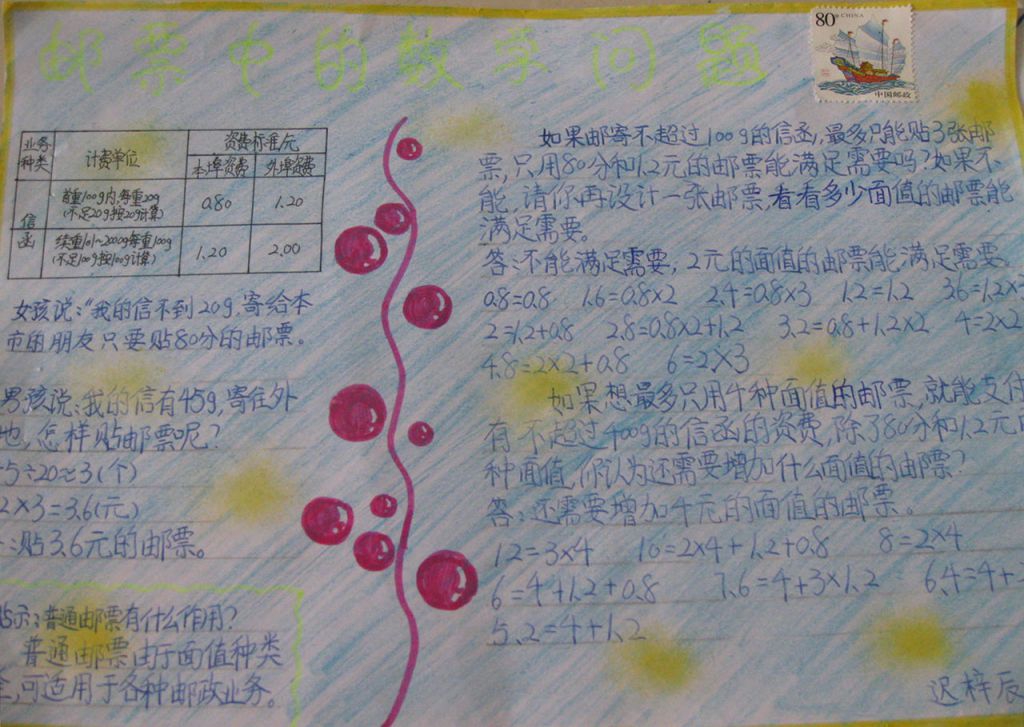 邮票中的数学问题
80 CHINA
中国邮政
业务种类 计费单位 资费标准/元
本埠资费 外埠资费
信函
首重100g内,每重20g(不足20g按20g计算) 0.80 1.20
续重101~2000g每重100g(不足100g按100g计算) 1.20 2.00
女孩说:“我的信不到20g,寄给本
市的朋友只要贴80分的邮票。
男孩说:我的信有45g,寄往外
地,怎样贴邮票呢?
5÷20≈3(个)
2×3=3.6(元)
:贴3.6元的邮票。
示:普通邮票有什么作用?
普通邮票由于面值种类
全,可适用于各种邮政业务。
如果邮寄不超过100g的信函,最多只能贴3张邮
票,只用80分和1.2元的邮票能满足需要吗?如果不
能,请你再设计一张邮票,看看多少面值的邮票能
满足需要。
答:不能满足需要,2元的面值的邮票能满足需要。
0.8=0.8 1.6=0.8×2 2.4=0.8×3 1.2=1.2 3.6=1.2×
2=1.2+0.8 2.8=0.8×2+1.2 3.2=0.8+1.2×2 4=2×2
4.8=2×2+0.8 6=2×3
如果想最多只用4种面值的邮票,就能支付
有不超过400g的信函的资费,除了80分和1.2元
种面值,你认为还需要增加什么面值的邮票?
答:还需要增加4元的面值的邮票。
12=3×4 10=2×4+1.2+0.8 8=2×4
6=4+1.2+0.8 7.6=4+3×1.2 6.4=4+
5.2=4+1.2
迟梓辰